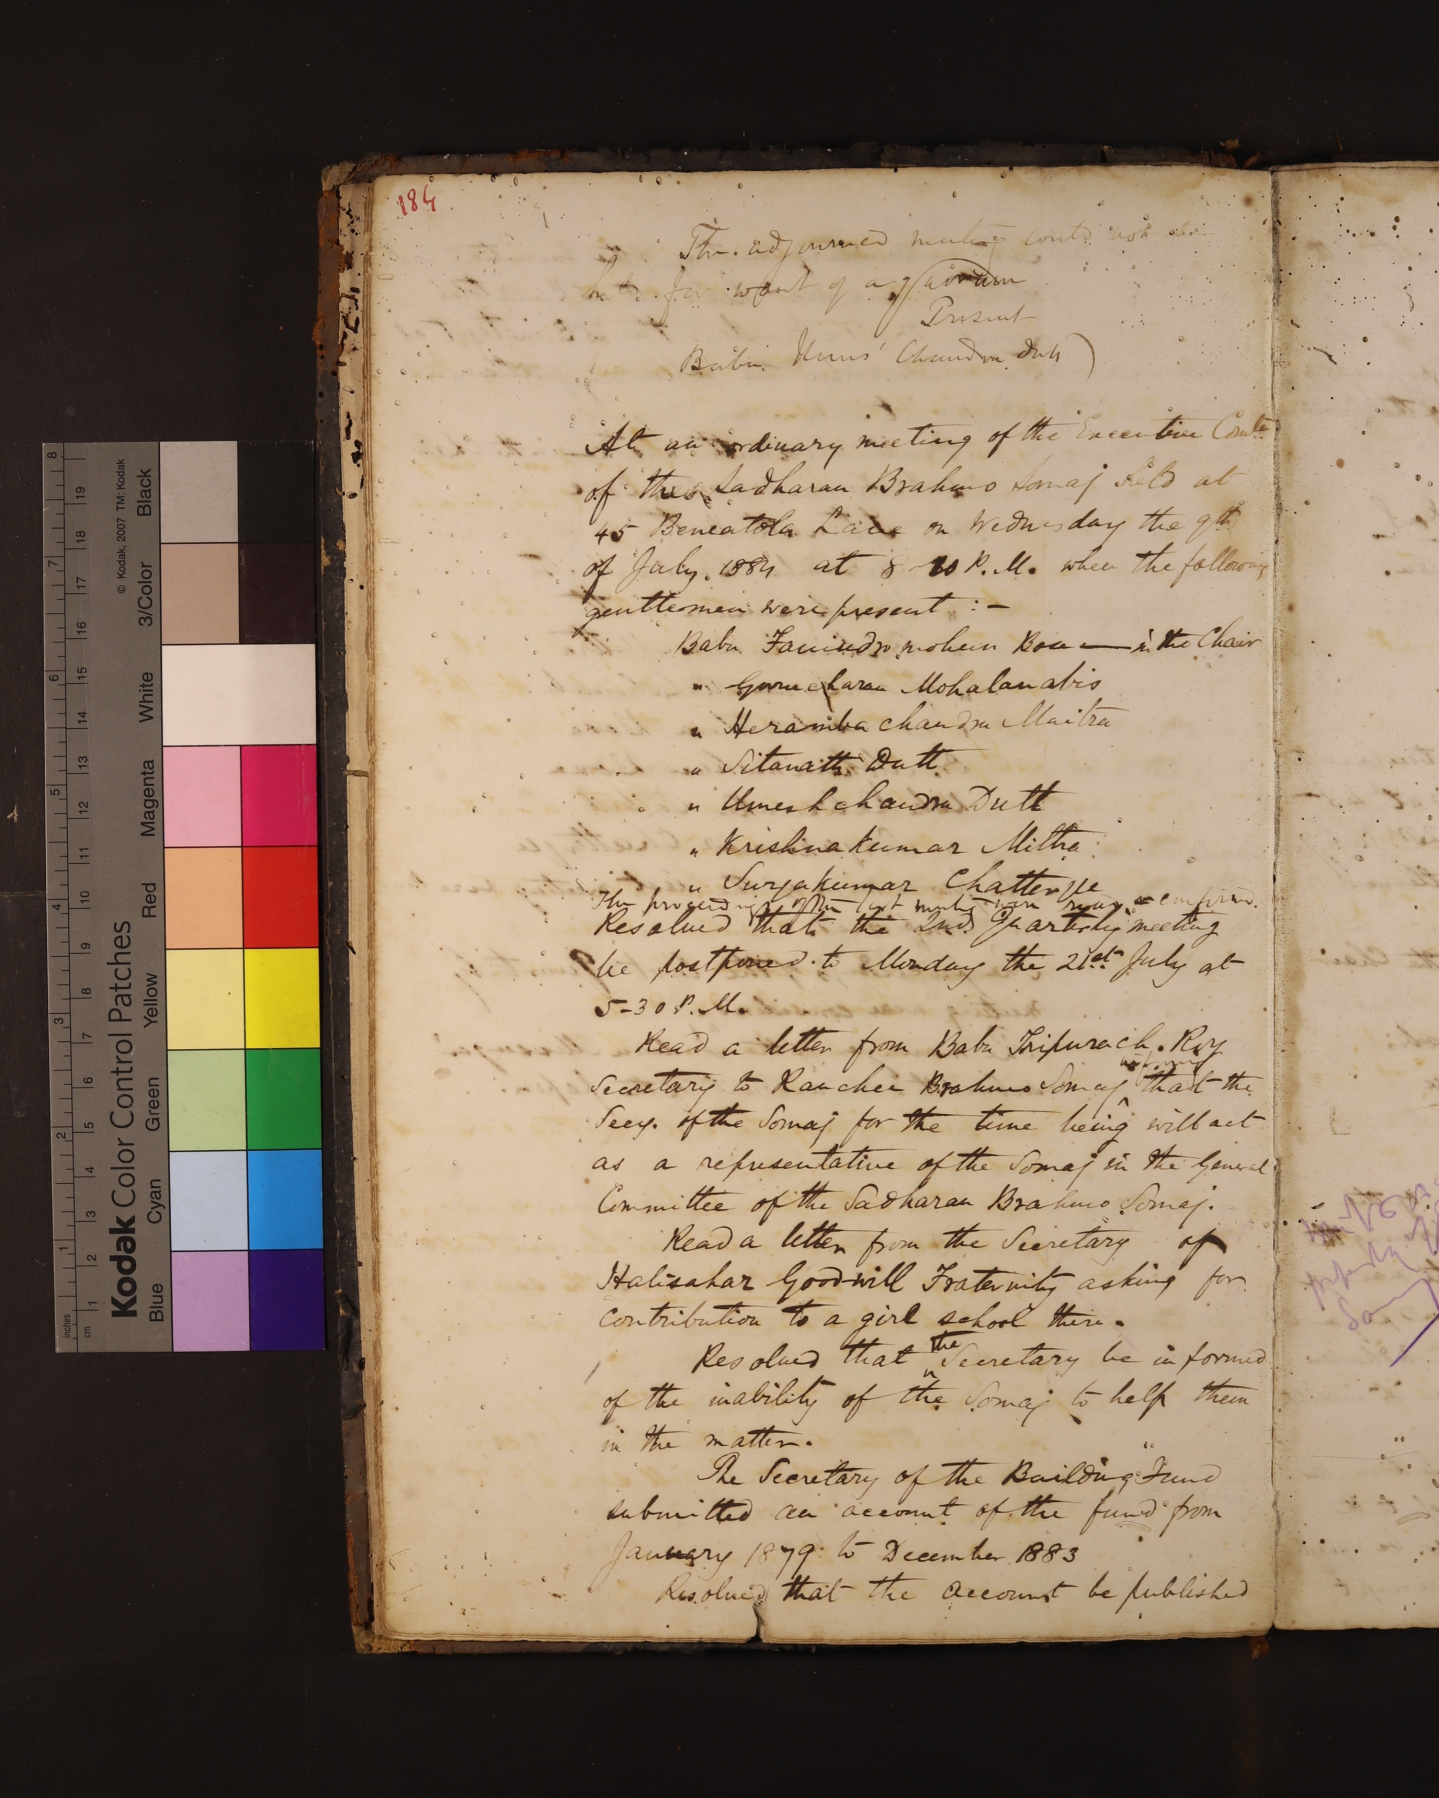 184
The adjourned meeting could not be
held for want of a quorum
Present
Babu Umes Chandra Dutt)
At an ordinary meeting of the Executive Comtee
of the Sadharan Brahmo Somaj held at
45 Beneatola Lane on Wednesday the 9th
of July, 1884 at 8-20 P.M. when the following
gentlemen were present :-
Babu Fanindro mohun Bose — in the Chair
" Gurucharan Mohalanabis
" Heramba chandra Maitra
" Sitanath Dutt
" Umesh chandra Dutt
" Krishna kumar Mittra
" Surjakumar Chatterjje
The proceedings of the last meeting were read & confirmed.
Resolved that the 2nd Quarterly meeting
be postponed to Monday the 21st July at
5-30 P.M.
Read a letter from Babu Tripurach. Roy
informing
Secretary to Ranchee Brahmo Somaj that the
Secy. of the Somaj for the time being will act
as a representative of the Somaj in the General
Committee of the Sadharan Brahmo Somaj.
Read a letter from the Secretary of
Halisahar Good-will Fraternity asking for
contribution to a girl school there.
Resolved that the Secretary be informed
of the inability of the Somaj to help them
in the matter.
The Secretary of the Building Fund
submitted an account of the fund from
January 1879 to December 1883
Resolved that the account be published
Kodak Color Control Patches
© Kodak, 2007 TM: Kodak
Blue Cyan Green Yellow Red Magenta White 3/Color Black
inches 1 2 3 4 5 6 7 8
cm 1 2 3 4 5 6 7 8 9 10 11 12 13 14 15 16 17 18 19